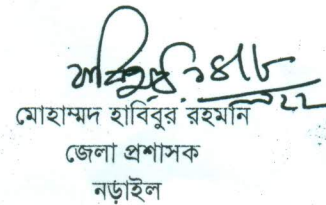 মোহাম্মদ হাবিবুর রহমান
জেলা প্রশাসক
নড়াইল